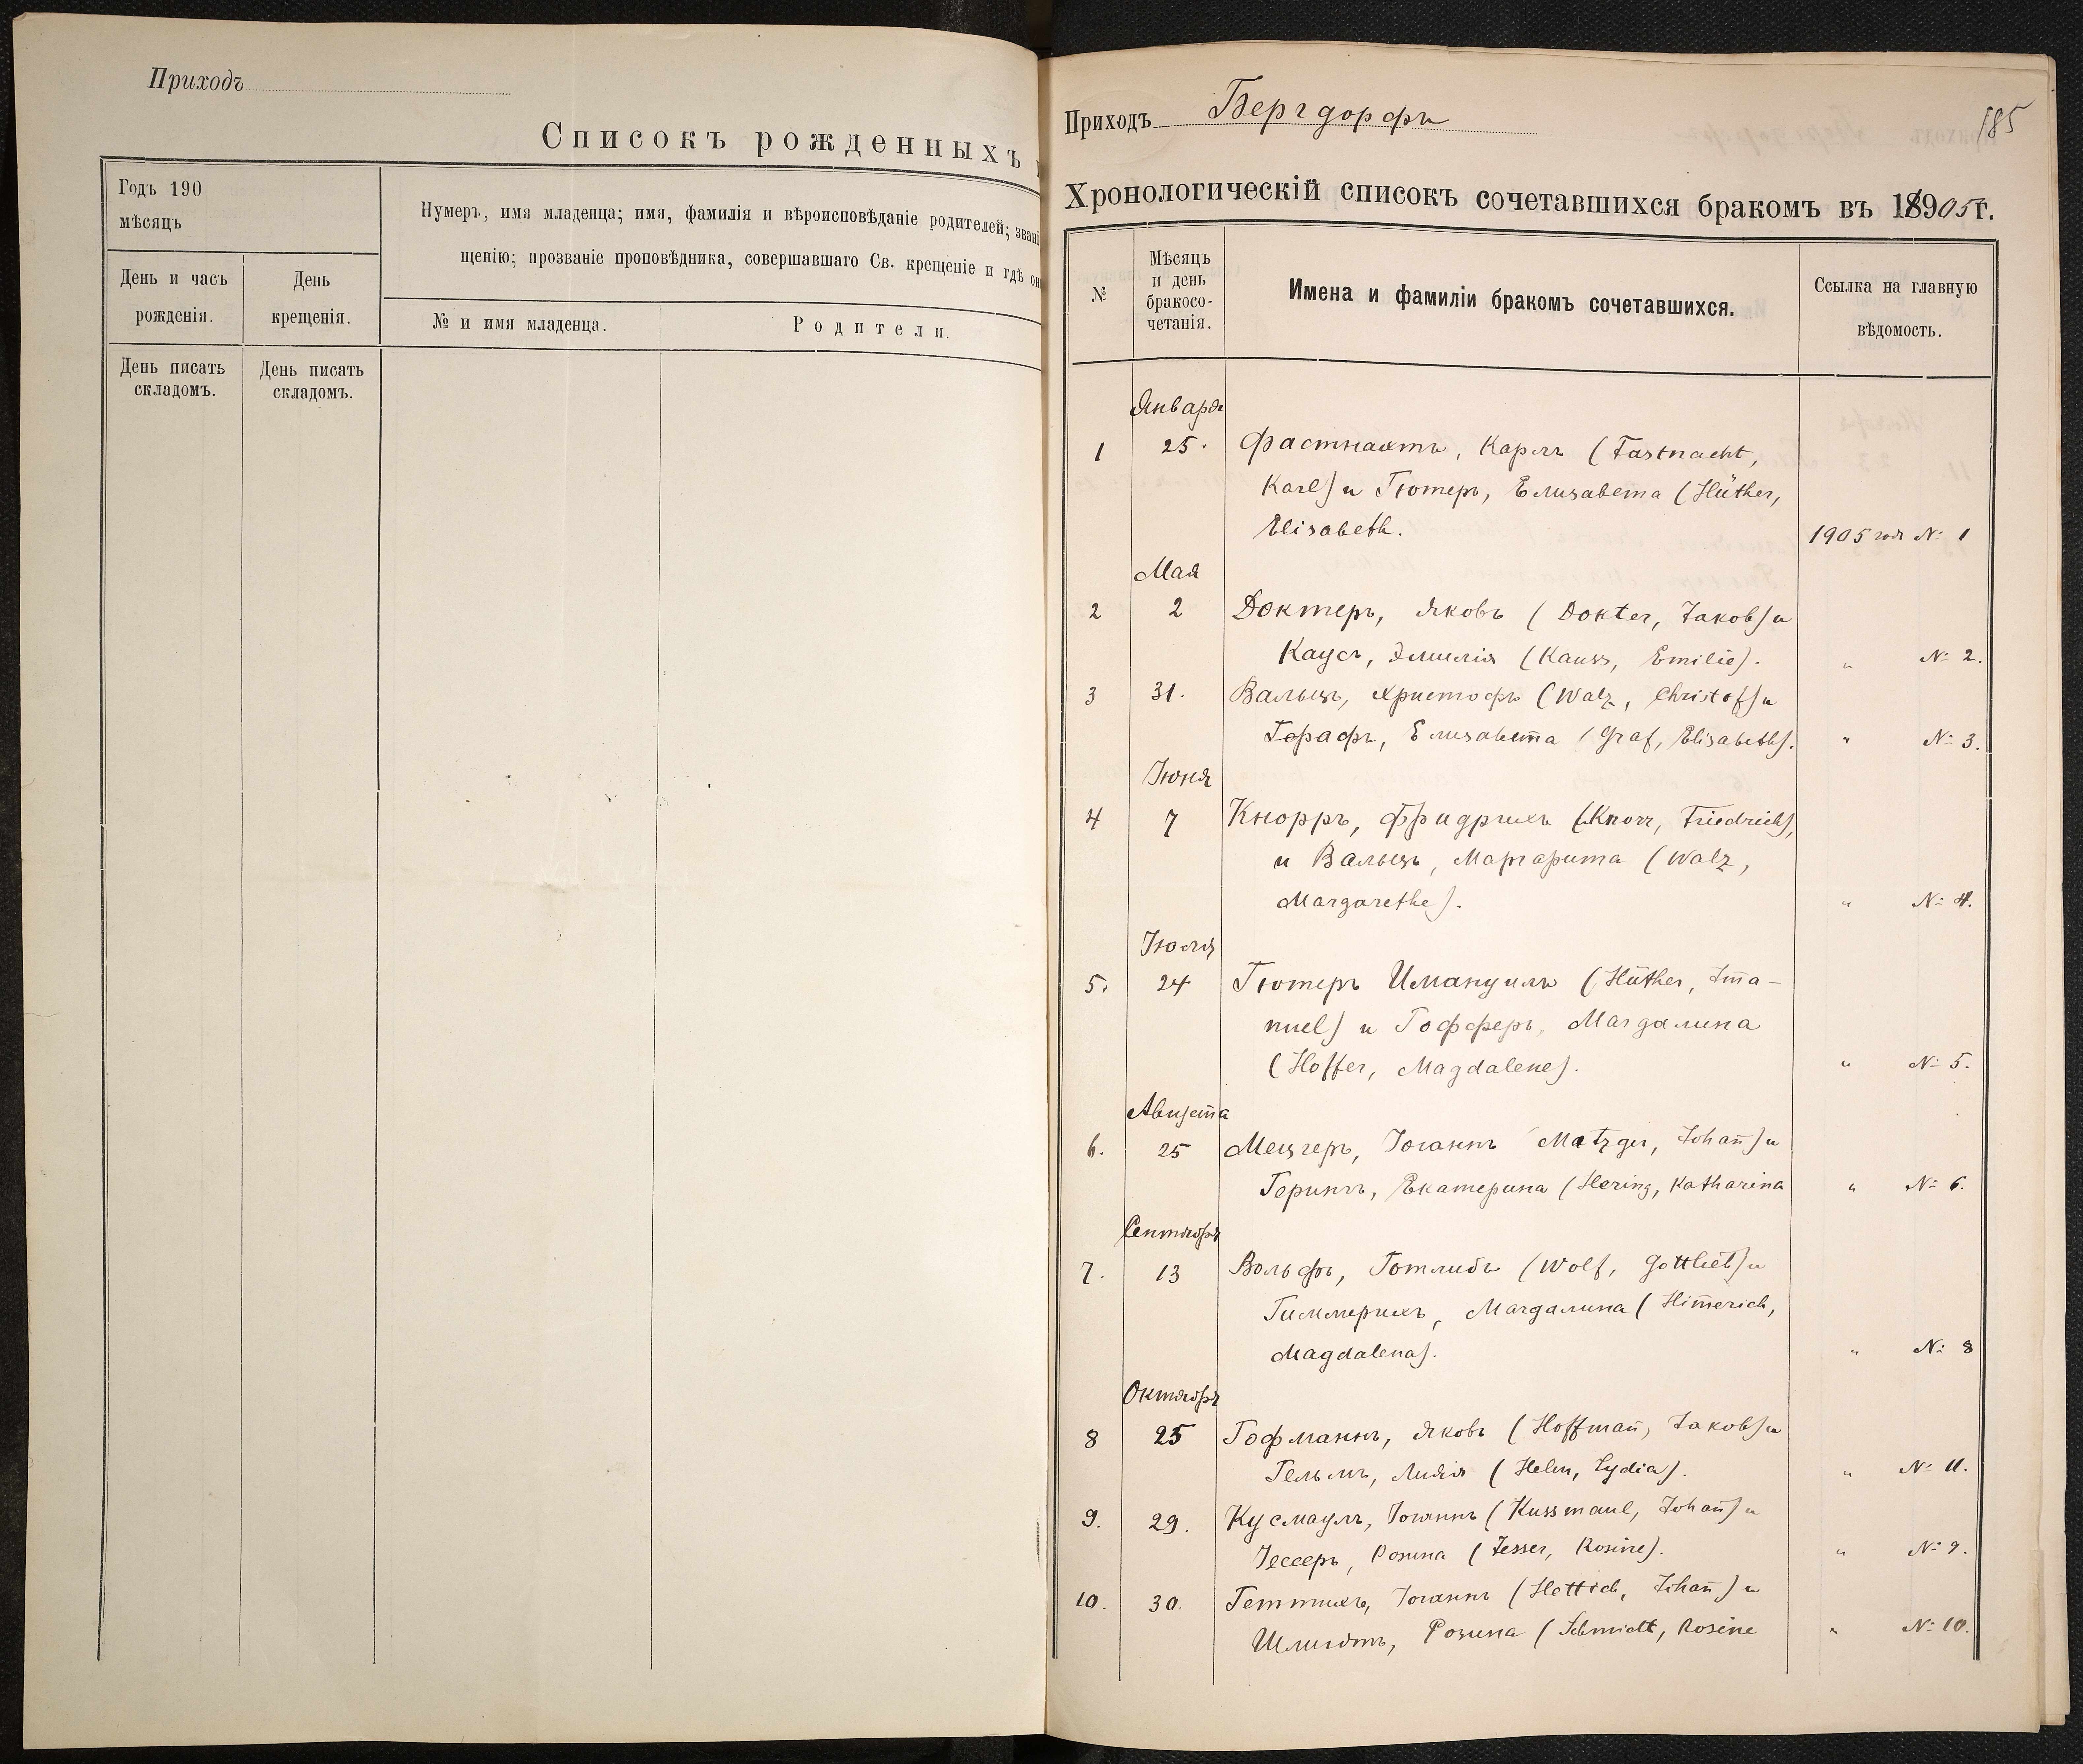 Приходъ
Списокъ рожденныхъ
Годъ 190
мѣсяцъ
Нумеръ, имя младенца; имя, фамилія и вѣроисповѣданіе родителей; звані
щенію; прозваніе проповѣдника, совершавшаго Св. крещеніе и гдѣ он
День и часъ
рожденія.
День
крещенія.
№ и имя младенца.
Родители.
День писать
складомъ.
День писать
складомъ.
185
Приходъ Бергдорфъ
Хронологическій списокъ сочетавшихся бракомъ въ 18905 г.
№
Мѣсяцъ
и день
бракосо-
четанія.
Имена и фамиліи бракомъ сочетавшихся.
Ссылка на главную
вѣдомость.
Января
1 25. Фастнахтъ, Карлъ (Fastnacht,
Karl) и Гютеръ, Елизавета (Hüther,
Elisabeth. 1905 года № 1
Мая
2 2 Доктеръ, Яковъ (Dokter, Jakob) и
Каусъ, Эмилія (Kauss, Emilie). " № 2.
3 31. Вальцъ, Христофъ (Walz, Christof) и
Герафъ, Елизавета (Graf, Elisabeth). " № 3.
Іюня
4 7 Кнорръ, Фридрихъ (Knorr, Friedrich),
и Вальцъ, Маргарита (Walz,
Margarethe). " № 4.
Іюля
5. 24 Гютеръ Имануилъ (Hüther, Im̄a-
nuel) и Гофферъ, Магдалина
(Hoffer, Magdalene). " № 5.
Августа
6. 25 Мецгеръ, Іоганнъ Metzger, Johan̄) и
Герингъ, Екатерина (Hering, Katharina " № 6.
Сентября
7. 13 Вольфъ, Готлибъ (Wolf, Gottlieb) и
Гиммерихъ, Магдалина (Him̄erich,
Magdalena). " № 8
Октября
8 25 Гофманнъ, Яковъ (Hoffman̄, Jakob) и
Гельмъ, Лидія (Helm, Lydia). " № 11.
9. 29. Кусмаулъ, Іоганнъ (Kussmaul, Johan̄) и
Іессеръ, Розина (Jesser, Rosine). " № 9.
10. 30. Геттихъ, Іоганнъ (Hettich, Johan̄) и
Шмидтъ, Розина (Schmidt, Rosine " № 10.